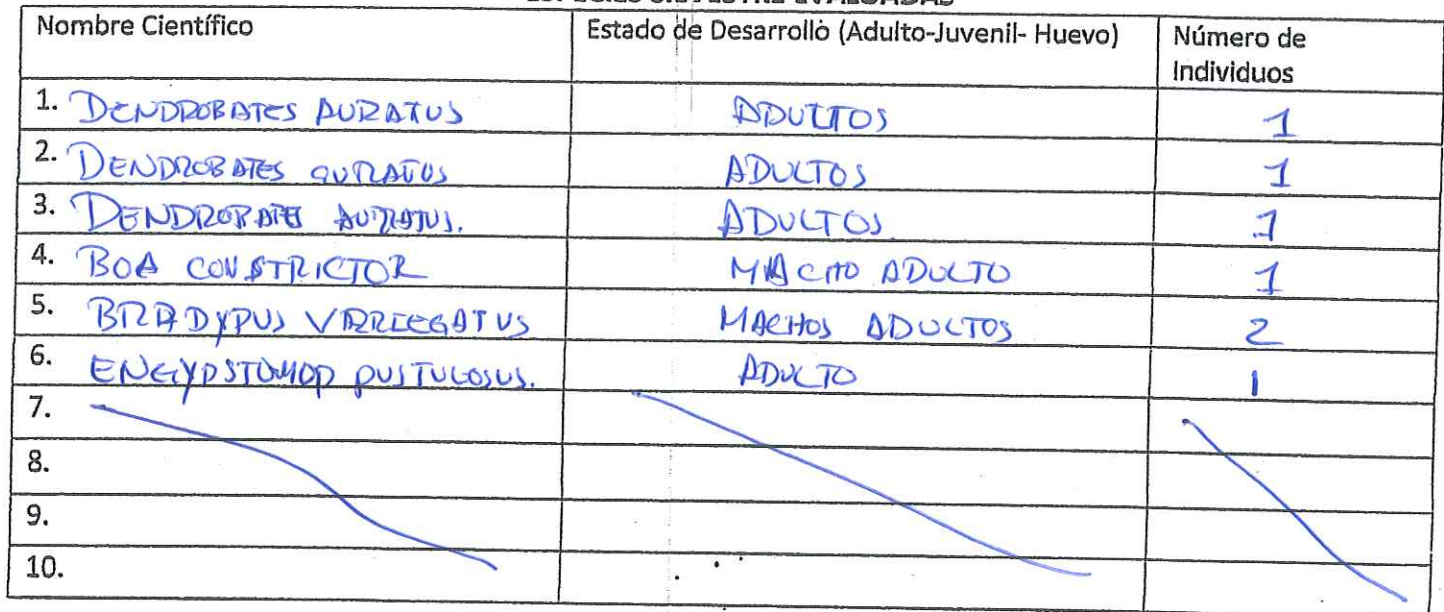 Nombre Científico Estado de Desarrollo (Adulto-Juvenil- Huevo) Número de
Individuos
1. DENDROBATES AURATUS ADULTOS 1
2. DENDROBATES AURATUS ADULTOS 1
3. DENDROBATES AURATUS. ADULTOS 1
4. BOA CONSTRICTOR MACHO ADULTO 1
5. BRADYPUS VARIEGATUS MACHOS ADULTOS 2
6. ENGYPSTOMOP PUSTULOSUS. ADULTO 1
7.
8.
9.
10.